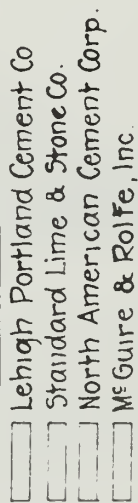 Lehigh Portland Cement Co
Standard Lime & Stone Co.
North American Cement Corp.
Mc Guire & Rolfe, Inc.